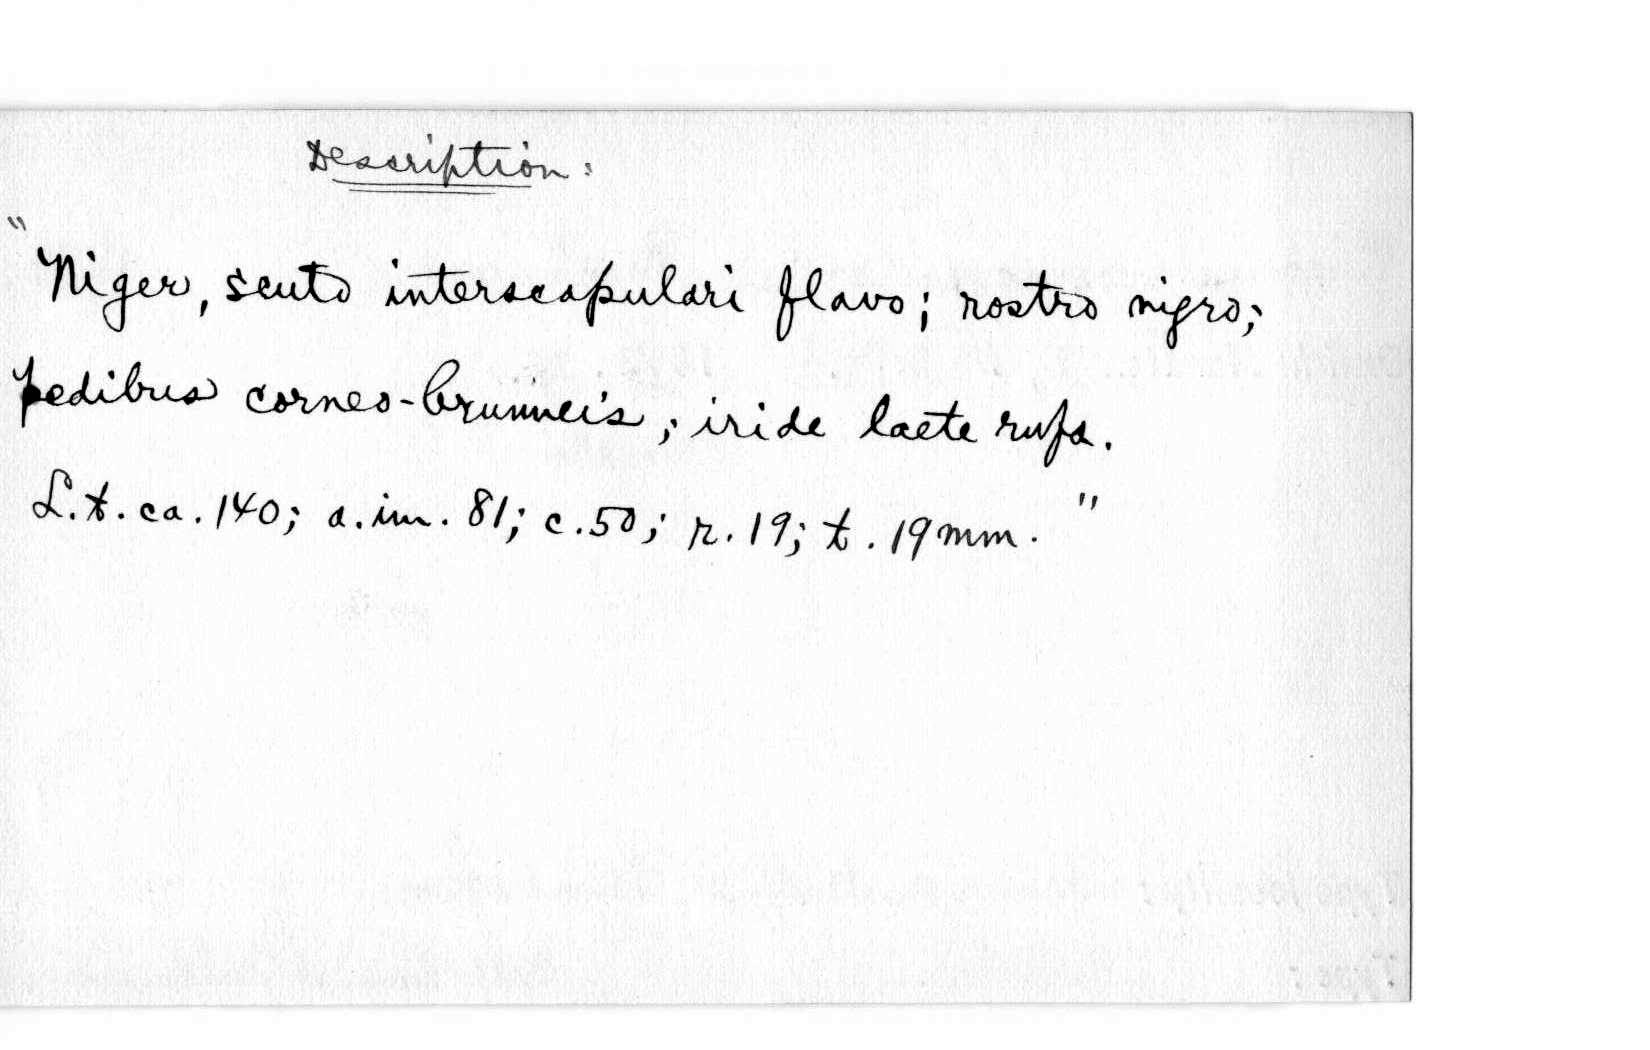 Description:
"Niger, scuto interscapulari flavo; rostro nigro;
pedibus corneo-brunneis; iride laete rufa.
L.t. ca. 140; a.im. 81; c.50; r.19; t.19mm."